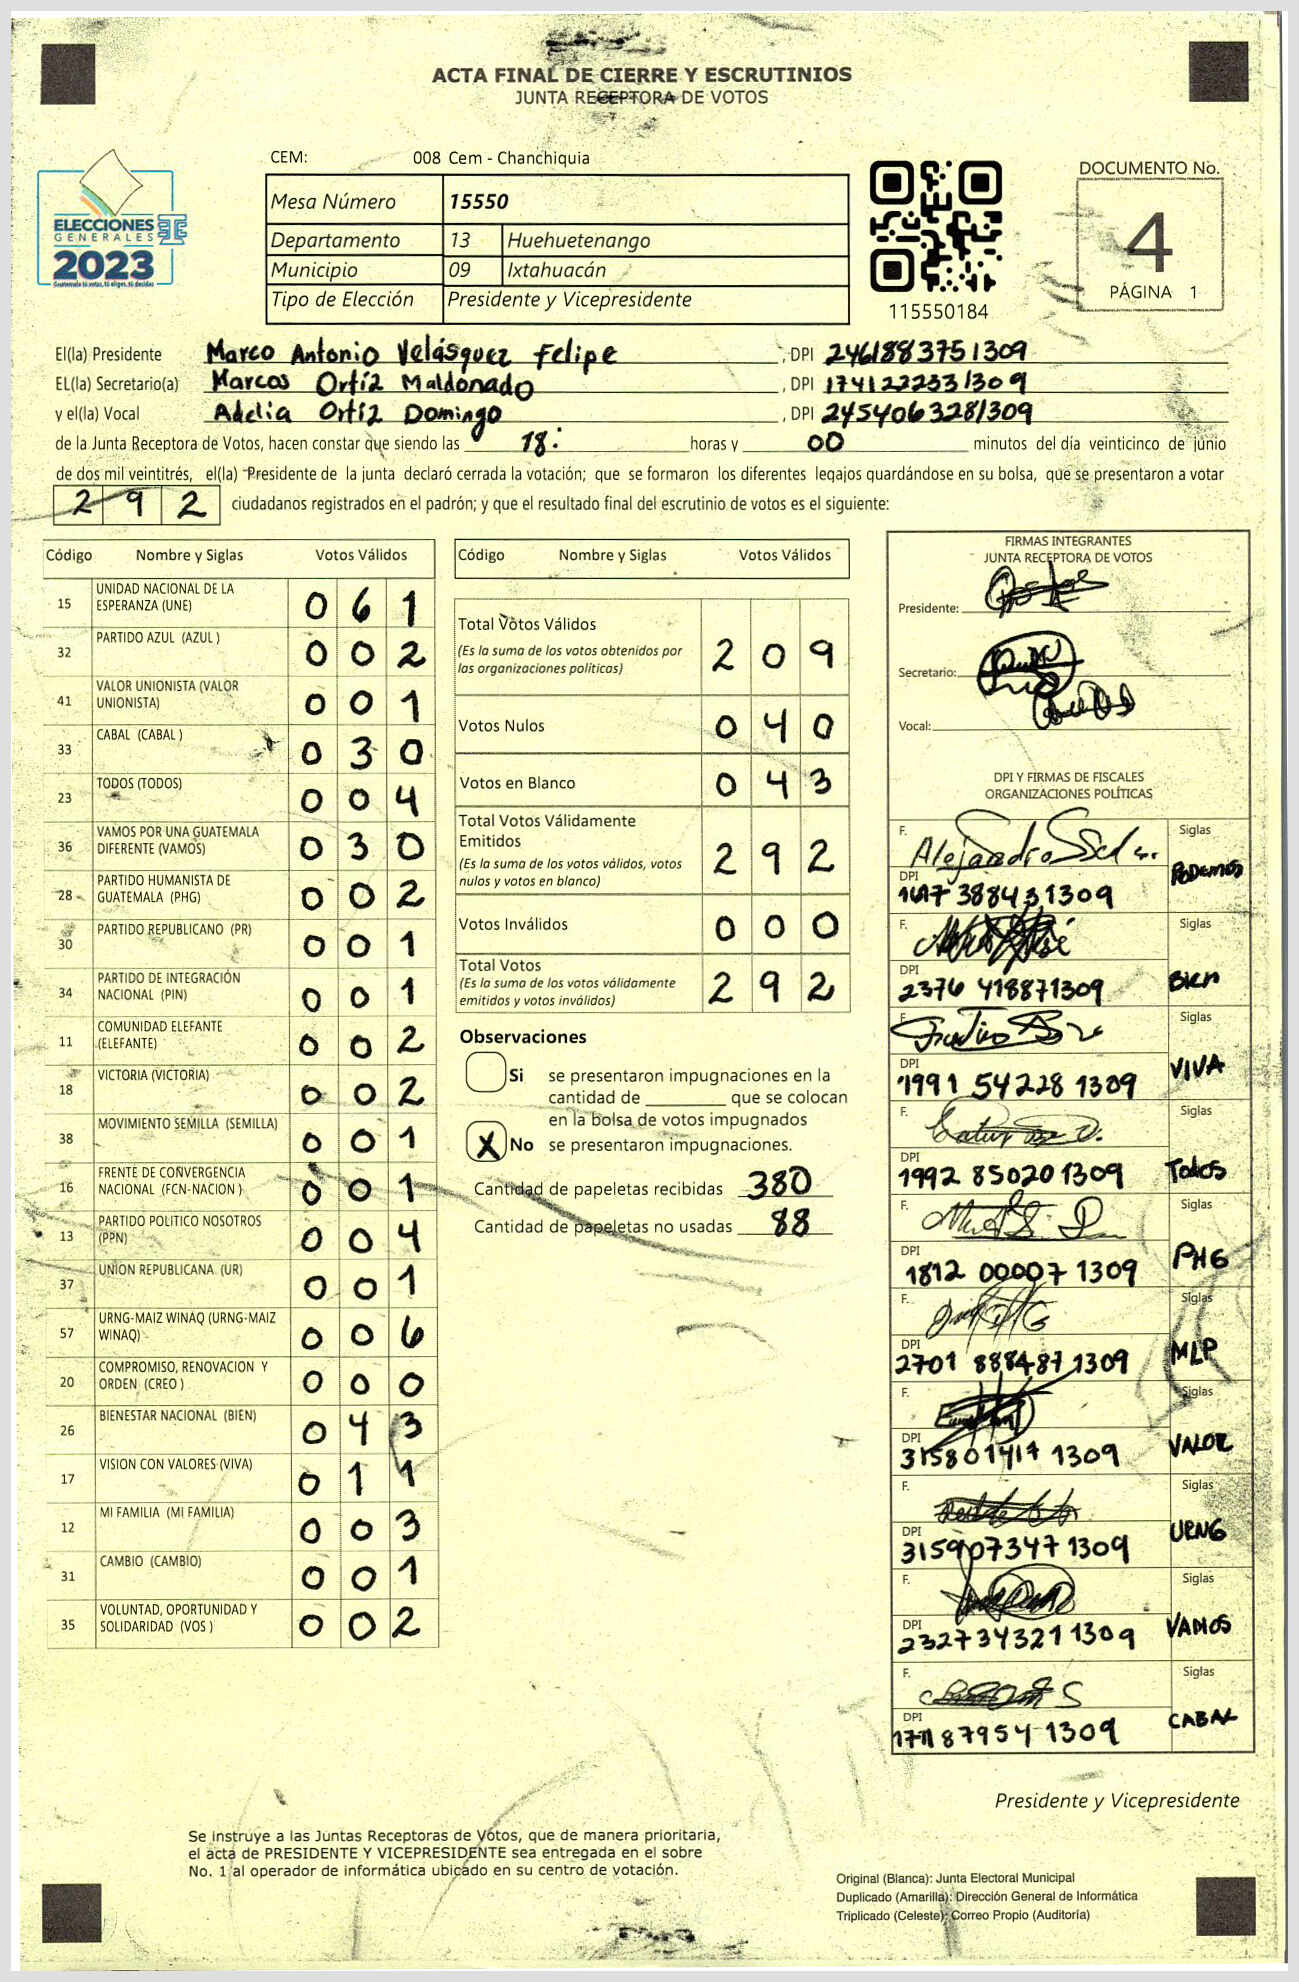 ACTA FINAL DE CIERRE Y ESCRUTINIOS
JUNTA RECEPTORA DE VOTOS
CEM: 008 Cem - Chanchiquia
ELECCIONES
GENERALES
2023
Guatemala tú votas, tú eliges, tú decides
Mesa Número 15550
Departamento 13 Huehuetenango
Municipio 09 Ixtahuacán
Tipo de Elección Presidente y Vicepresidente
115550184
DOCUMENTO No.
4
PÁGINA 1
El(la) Presidente Marco Antonio Velásquez Felipe , DPI 2461883751309
EL(la) Secretario(a) Marcos Ortíz Maldonado , DPI 1741222331309
y el(la) Vocal Adelia Ortíz Domingo , DPI 2454063281309
de la Junta Receptora de Votos, hacen constar que siendo las 18: horas y 00 minutos del día veinticinco de junio
de dos mil veintitrés, el(la) Presidente de la junta declaró cerrada la votación; que se formaron los diferentes legajos guardándose en su bolsa, que se presentaron a votar
292 ciudadanos registrados en el padrón; y que el resultado final del escrutinio de votos es el siguiente:
Código Nombre y Siglas Votos Válidos
15 UNIDAD NACIONAL DE LA ESPERANZA (UNE) 0 6 1
32 PARTIDO AZUL (AZUL ) 0 0 2
41 VALOR UNIONISTA (VALOR UNIONISTA) 0 0 1
33 CABAL (CABAL ) 0 3 0
23 TODOS (TODOS) 0 0 4
36 VAMOS POR UNA GUATEMALA DIFERENTE (VAMOS) 0 3 0
28 PARTIDO HUMANISTA DE GUATEMALA (PHG) 0 0 2
30 PARTIDO REPUBLICANO (PR) 0 0 1
34 PARTIDO DE INTEGRACIÓN NACIONAL (PIN) 0 0 1
11 COMUNIDAD ELEFANTE (ELEFANTE) 0 0 2
18 VICTORIA (VICTORIA) 0 0 2
38 MOVIMIENTO SEMILLA (SEMILLA) 0 0 1
16 FRENTE DE CONVERGENCIA NACIONAL (FCN-NACION ) 0 0 1
13 PARTIDO POLITICO NOSOTROS (PPN) 0 0 4
37 UNION REPUBLICANA (UR) 0 0 1
57 URNG-MAIZ WINAQ (URNG-MAIZ WINAQ) 0 0 6
20 COMPROMISO, RENOVACION Y ORDEN (CREO ) 0 0 0
26 BIENESTAR NACIONAL (BIEN) 0 4 3
17 VISION CON VALORES (VIVA) 0 1 1
12 MI FAMILIA (MI FAMILIA) 0 0 3
31 CAMBIO (CAMBIO) 0 0 1
35 VOLUNTAD, OPORTUNIDAD Y SOLIDARIDAD (VOS ) 0 0 2
Código Nombre y Siglas Votos Válidos
Total Votos Válidos 2 0 9
(Es la suma de los votos obtenidos por
las organizaciones políticas)
Votos Nulos 0 4 0
Votos en Blanco 0 4 3
Total Votos Válidamente
Emitidos 2 9 2
(Es la suma de los votos válidos, votos
nulos y votos en blanco)
Votos Inválidos 0 0 0
Total Votos 2 9 2
(Es la suma de los votos válidamente
emitidos y votos inválidos)
Observaciones
Si se presentaron impugnaciones en la
cantidad de ________ que se colocan
en la bolsa de votos impugnados
X No se presentaron impugnaciones.
Cantidad de papeletas recibidas 380
Cantidad de papeletas no usadas 88
FIRMAS INTEGRANTES
JUNTA RECEPTORA DE VOTOS
Presidente:
Secretario:
Vocal:
DPI Y FIRMAS DE FISCALES
ORGANIZACIONES POLÍTICAS
F. Alejandro Siglas
DPI PODEMOS
F. Siglas
DPI BIEN
2376 418871309
F. Siglas
DPI VIVA
1991 54228 1309
F. Siglas
DPI Todos
1992 85020 1309
F. Siglas
DPI PHG
1812 00007 1309
F. Siglas
DPI MLP
2701 888487 1309
F. Siglas
DPI VALOR
315801417 1309
F. Siglas
DPI URNG
315907347 1309
F. Siglas
DPI VAMOS
232734321 1309
F. Siglas
DPI CABAL
Presidente y Vicepresidente
Se instruye a las Juntas Receptoras de Votos, que de manera prioritaria,
el acta de PRESIDENTE Y VICEPRESIDENTE sea entregada en el sobre
No. 1 al operador de informática ubicado en su centro de votación.
Original (Blanca): Junta Electoral Municipal
Duplicado (Amarilla): Dirección General de Informática
Triplicado (Celeste): Correo Propio (Auditoría)